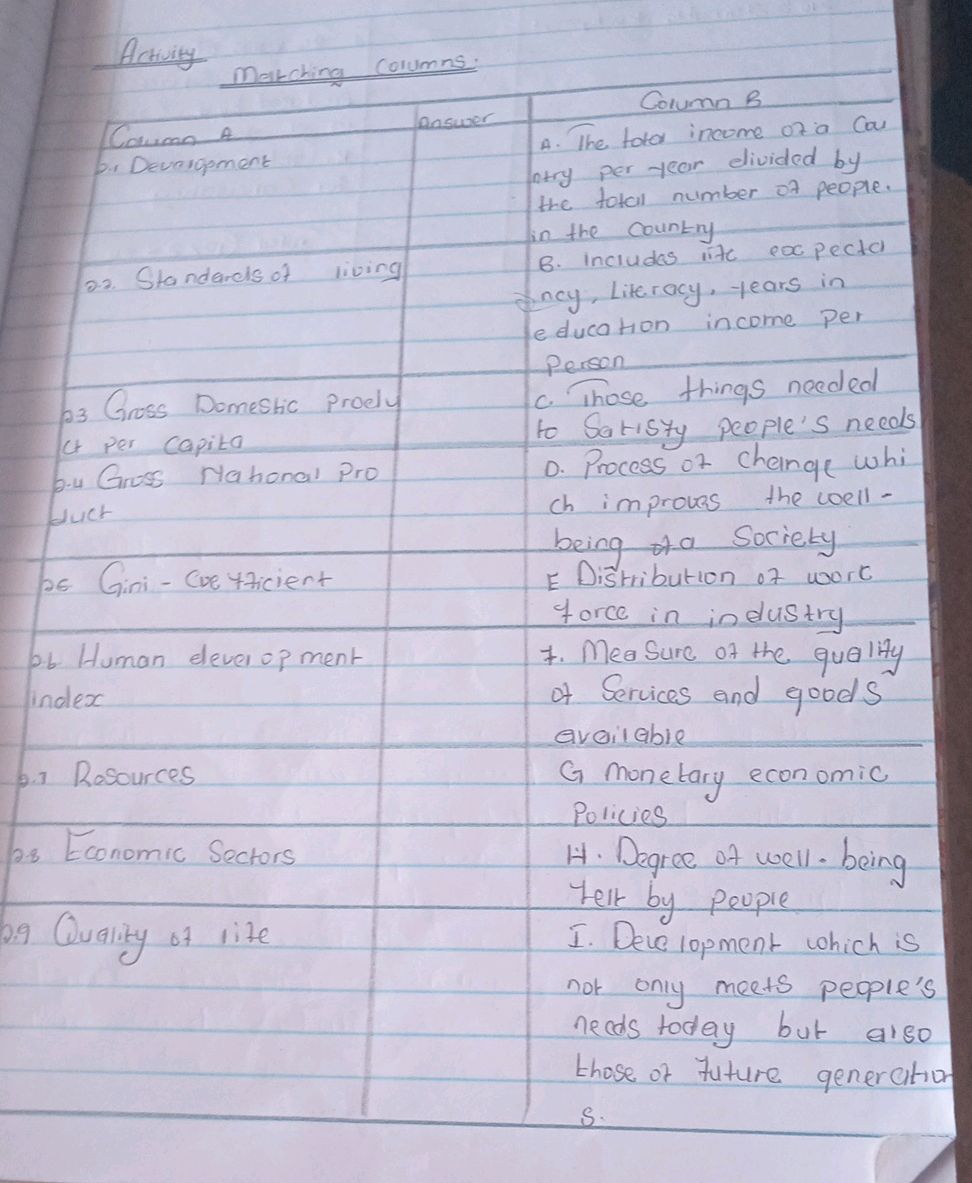 Activity
Matching Columns.
Column A
Answer
Column B
2.1 Development
A. The total income of a Cou
ntry per year divided by
the total number of people.
in the Country
2.2. Standards of living
B. Includes life expecta
ncy, Literacy, years in
education income per
Person
2.3 Gross Domestic Produ
ct per capita
C. Those things needed
to Satisfy people's needs
2.4 Gross National Pro
duct
D. Process of change whi
ch improves the well-
being of a Society
2.5 Gini-Coefficient
E Distribution of work
force in industry
2.6 Human development
index
F. Measure of the quality
of Services and goods
available
2.7 Resources
G Monetary economic
Policies
2.8 Economic Sectors
H. Degree of well-being
felt by people
2.9 Quality of life
I. Development which is
not only meets people's
needs today but also
those of future generation
s.